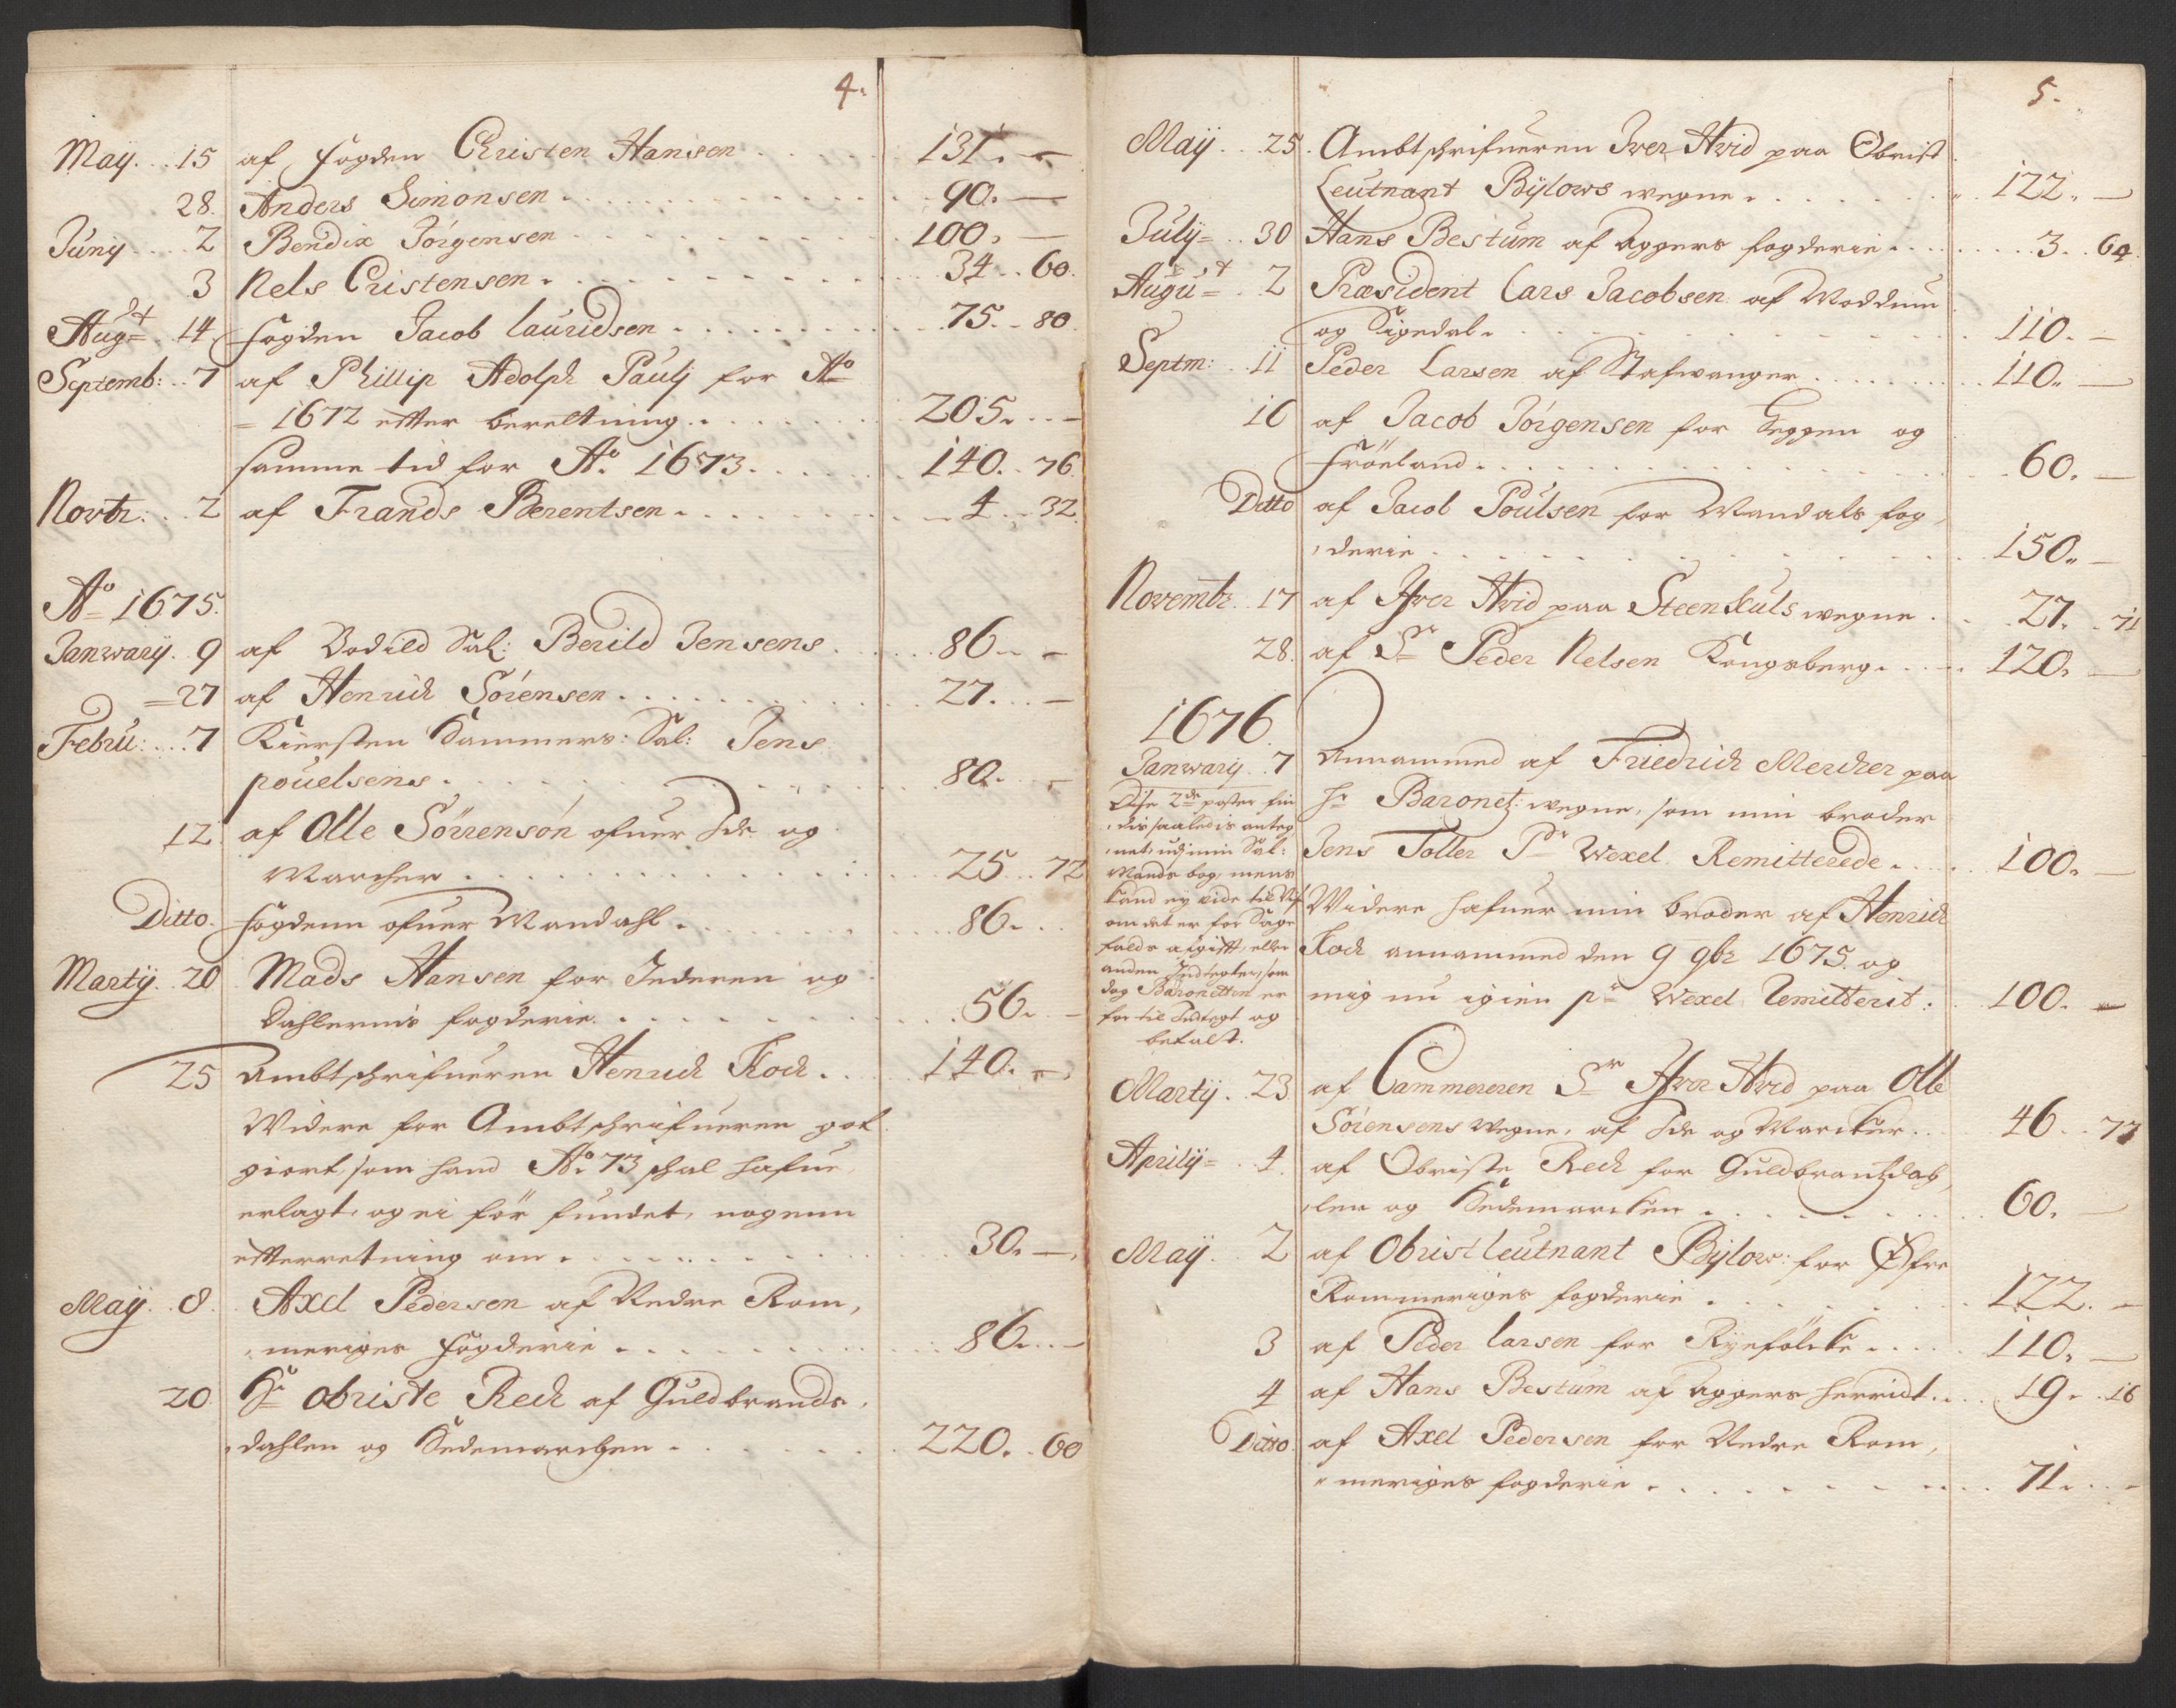 4.
May. . . 15 af fogden Christen Hansen . . . . 131. —
28. Anders Simonsen . . . . 90. —
Juny . . . 2 Bendix Jörgensen . . . . 100. —
3 Nels Cristensen . . . . 34 . . 60.
Aug=t . 14 fogden Jacob lauridsen . . . . 75. - 80.
Septemb: . . 7 af Phillip Adolph Paulj for Ao
- 1672 efter bereltning . . . . 205. . . —
samme tid for Ao. 1673. . . . 140. . 76.
Novbr: . . 2 af Frands Berentsen . . . . 4 . . 32.
Ao 1675.
Janwary. 9 af Bodild Sal: Berild Jensens . . . 86. . —
= 27 af Henrich Sörensen . . . . 27. . . —
Febru: . . . 7 Kiersten Sammers: Sal: Jens
pouelsens . . . . 80. . —
12. af Olle Sörrensön ofuer Ide og
Marcher . . . . 25 . . 72
Ditto. fogdenn ofuer Mandahl . . . . 86. . .
Martij. . 20 Mads Hansen for Jederen og
Dahlernis fogderie . . . . 56. —
25 Ambtschrifueren Henrich Koch . . . 140. —
Widere for Ambtschrifueren got
giort, som hand Ao. 73 schal hafue
erlagt, og ei för fundet, nogenn
efterretning om . . . . 30. —
Maÿ. . 8. Axel Pedersen af Nedre Rom,
meriges fogderie . . . . 86. . . —
20. Hr. obriste Rech af Guldbrands,
dahlen og Hedemarchen . . . . 220. . 60
5.
Maÿ . . 25. Ambtschrifueren Iver Hvid paa Obrist
Leutnant Bÿlows wegne . . . . 122. —
July= . . 30 Hans Bestum af Aggers fogderie . . . . 3. . 64
Augu=t . 2 Præsident Lars Jacobsen af Moddum
og Sigedal . . . . 110. —
Septm: . . 11 Peder Larsen af Stafwanger . . . . 110. —
16 af Jacob Jörgensen for Heggen og
Fröeland . . . . 60. —
Ditto af Jacob Poulsen for Mandals fog,
derie . . . . 150. —
Novembr. . 17 af Ifver Hvid paa Steenkuls wegne . . . 27. . 71
28. af Sr Peder Nelsen Kongsberg . . . . 120. —
1676.
Janwary . 7 Annammed af Friedrich Mercker paa
hr Baronetz: wegne, som min broder
Jens Toller Pr Wexel. Remitterede . . . 100. —
Dise 2de poster fin
,dis saaledis anteg
,net, udj min Sal:
Mands bog, mens
kand ey vide
om det er for Sage
falds afgift, eller
anden Indtegter, som
dog Baronetten er
for til Indtegt og
betalt.
Widere hafuer min broder af Henrich
Koch annammed den 9 9br 1675. og
mig nu igien pr Wexel Remitterit: . 100. —
Martij. 23. af Cammereren Sr Ifver Hvid paa Olle
Sörensens wegne, af Ide og Marcker . . . 46 . . 77
Aprilÿ= . . 4. af Obriste Rech for Guldbrantzdah,
len og Hedemarcken . . . . 60. —
Maÿ . . 2 af Obristleutnant Bÿlow: for Öfre
Rommeriges fogderie . . . . 122. —
3 af Peder larsen for Ryefölcke . . . . 110. —
4 af Hans Bestum af Aggers herridt . . . 19. . 16
Ditto. af Axel Pedersen for Nedre Rom,
meriges fogderie . . . . 71. . . —